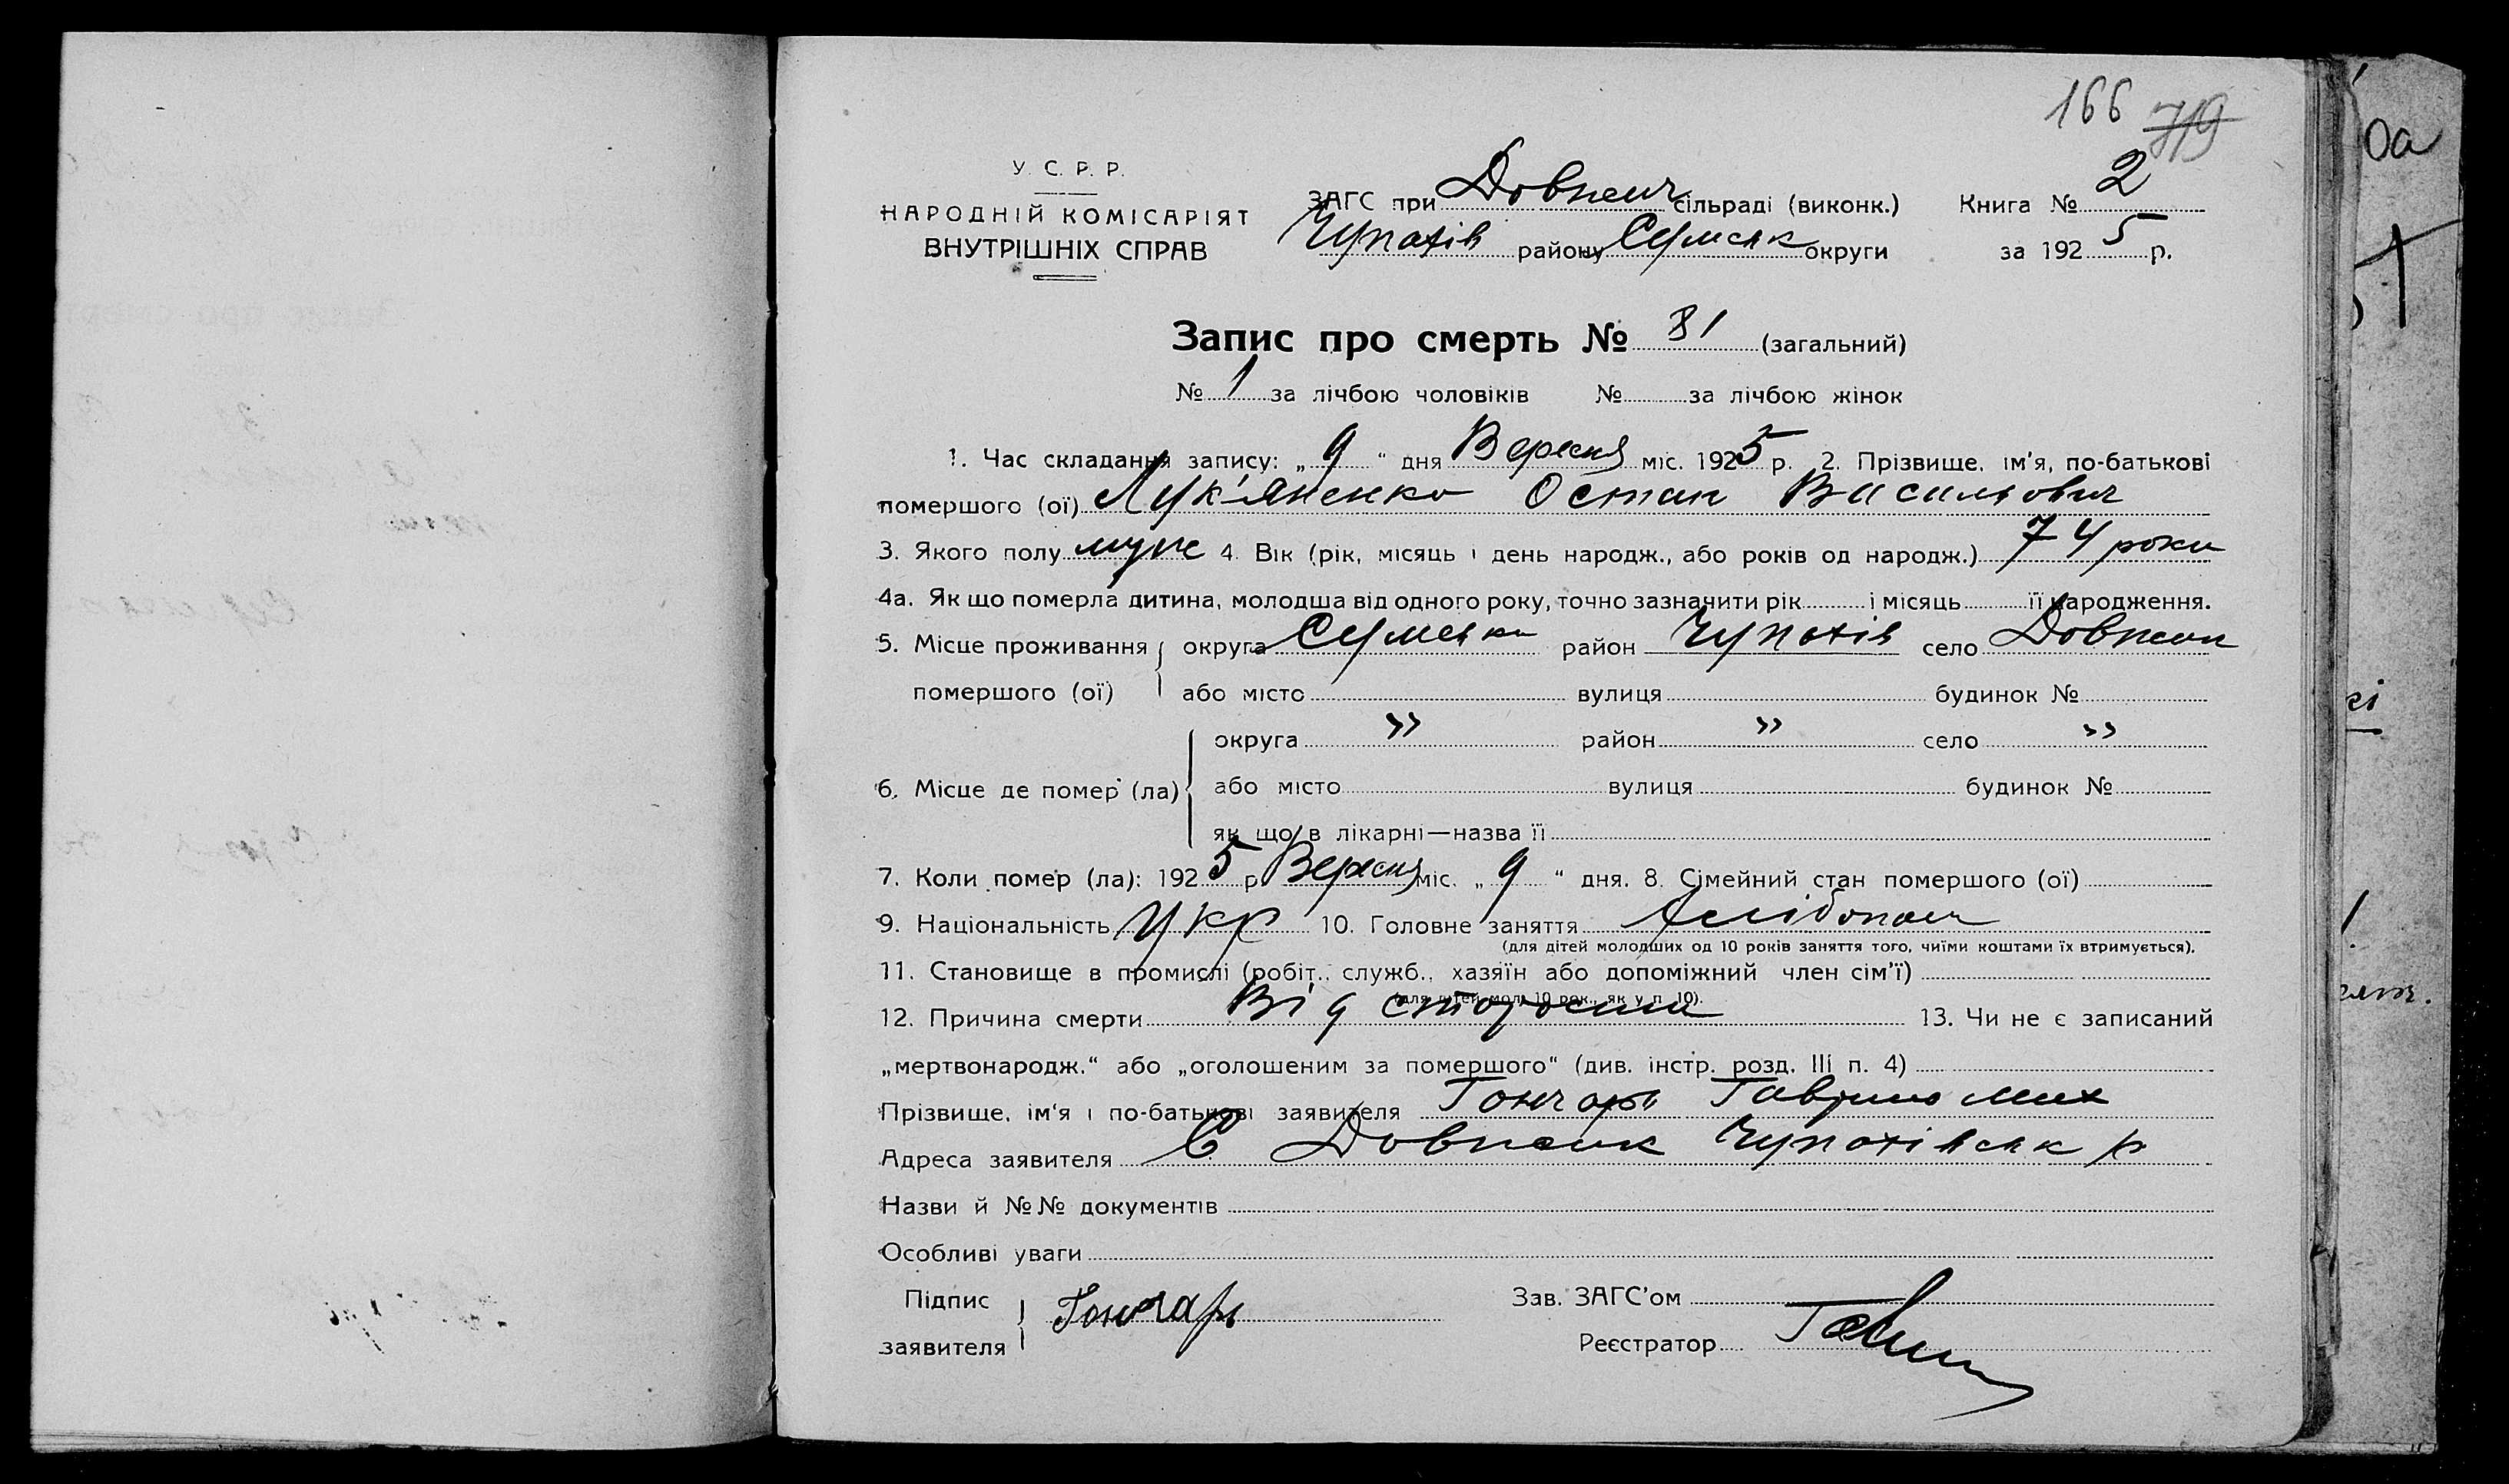 166 719
У. С. Р. Р.
НАРОДНІЙ КОМІСАРІЯТ
ВНУТРІШНІХ СПРАВ
ЗАГС при Довжич сільраді (виконк.) Книга № 2
Чупахів району Сумськ округи за 1925 р.
Запис про смерть № 31 (загальний)
№ 1 за лічбою чоловіків № за лічбою жінок
1. Час складання запису: „9“ дня Вересня міс. 1925 р. 2. Прізвище, ім'я, по-батькові
помершого (ої) Лук'яненко Остап Васильович
3. Якого полу муж 4. Вік (рік, місяць і день народж., або років од народж.) 74 роки
4а. Як що померла дитина, молодша від одного року, точно зазначити рік і місяць її народження.
5. Місце проживання округа Сумська район Чупахів село Довжик
помершого (ої) або місто вулиця будинок №
округа " район " село "
6. Місце де помер (ла) або місто вулиця будинок №
як що в лікарні—назва її
7. Коли помер (ла): 1925 р. Вересня міс. „9“ дня. 8. Сімейний стан помершого (ої)
9. Національність Укр 10. Головне заняття
(для дітей молодших од 10 років заняття того, чиїми коштами їх втримується).
11. Становище в промислі (робіт., служб., хазяїн або допоміжний член сім'ї)
(для дітей мол. 10 рок., як у п. 10).
12. Причина смерти Від старости 13. Чи не є записаний
„мертвонародж.“ або „оголошеним за помершого“ (див. інстр. розд. III п. 4)
Прізвище, ім'я і по-батькові заявителя Гончарь Гаврило Мих
Адреса заявителя С Довжик Чупахівськ р
Назви й №№ документів
Особливі уваги
Підпис
заявителя Гончарь
Зав. ЗАГС'ом
Реєстратор